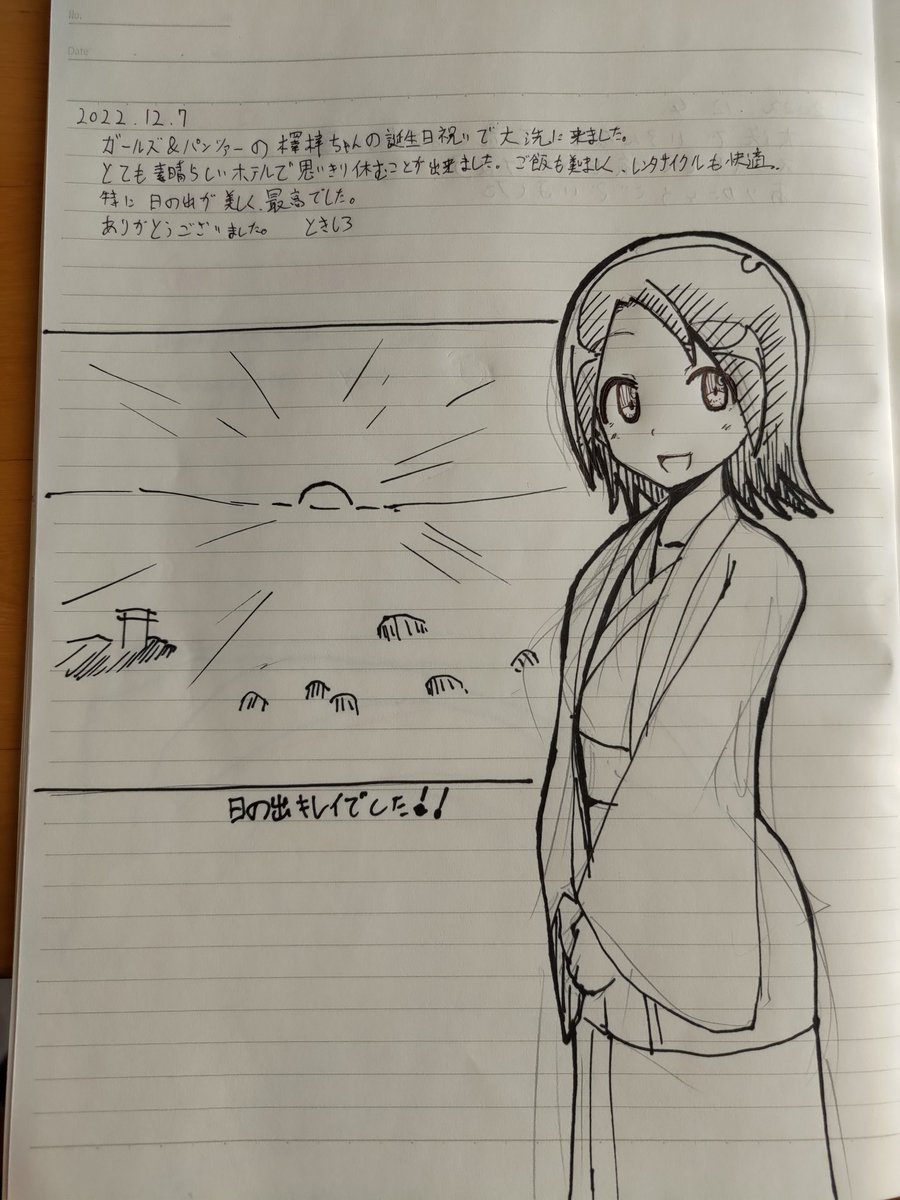 No.
Date
2022.12.7
ガールズ&パンツァーの澤梓ちゃんの誕生日祝いで大洗に来ました。
とても素晴らしいホテルで思いきり休むことが出来ました。ご飯も美味しく、レンタサイクルも快適。
特に日の出が美しく、最高でした。
ありがとうございました。 ときしろ
日の出キレイでした!!